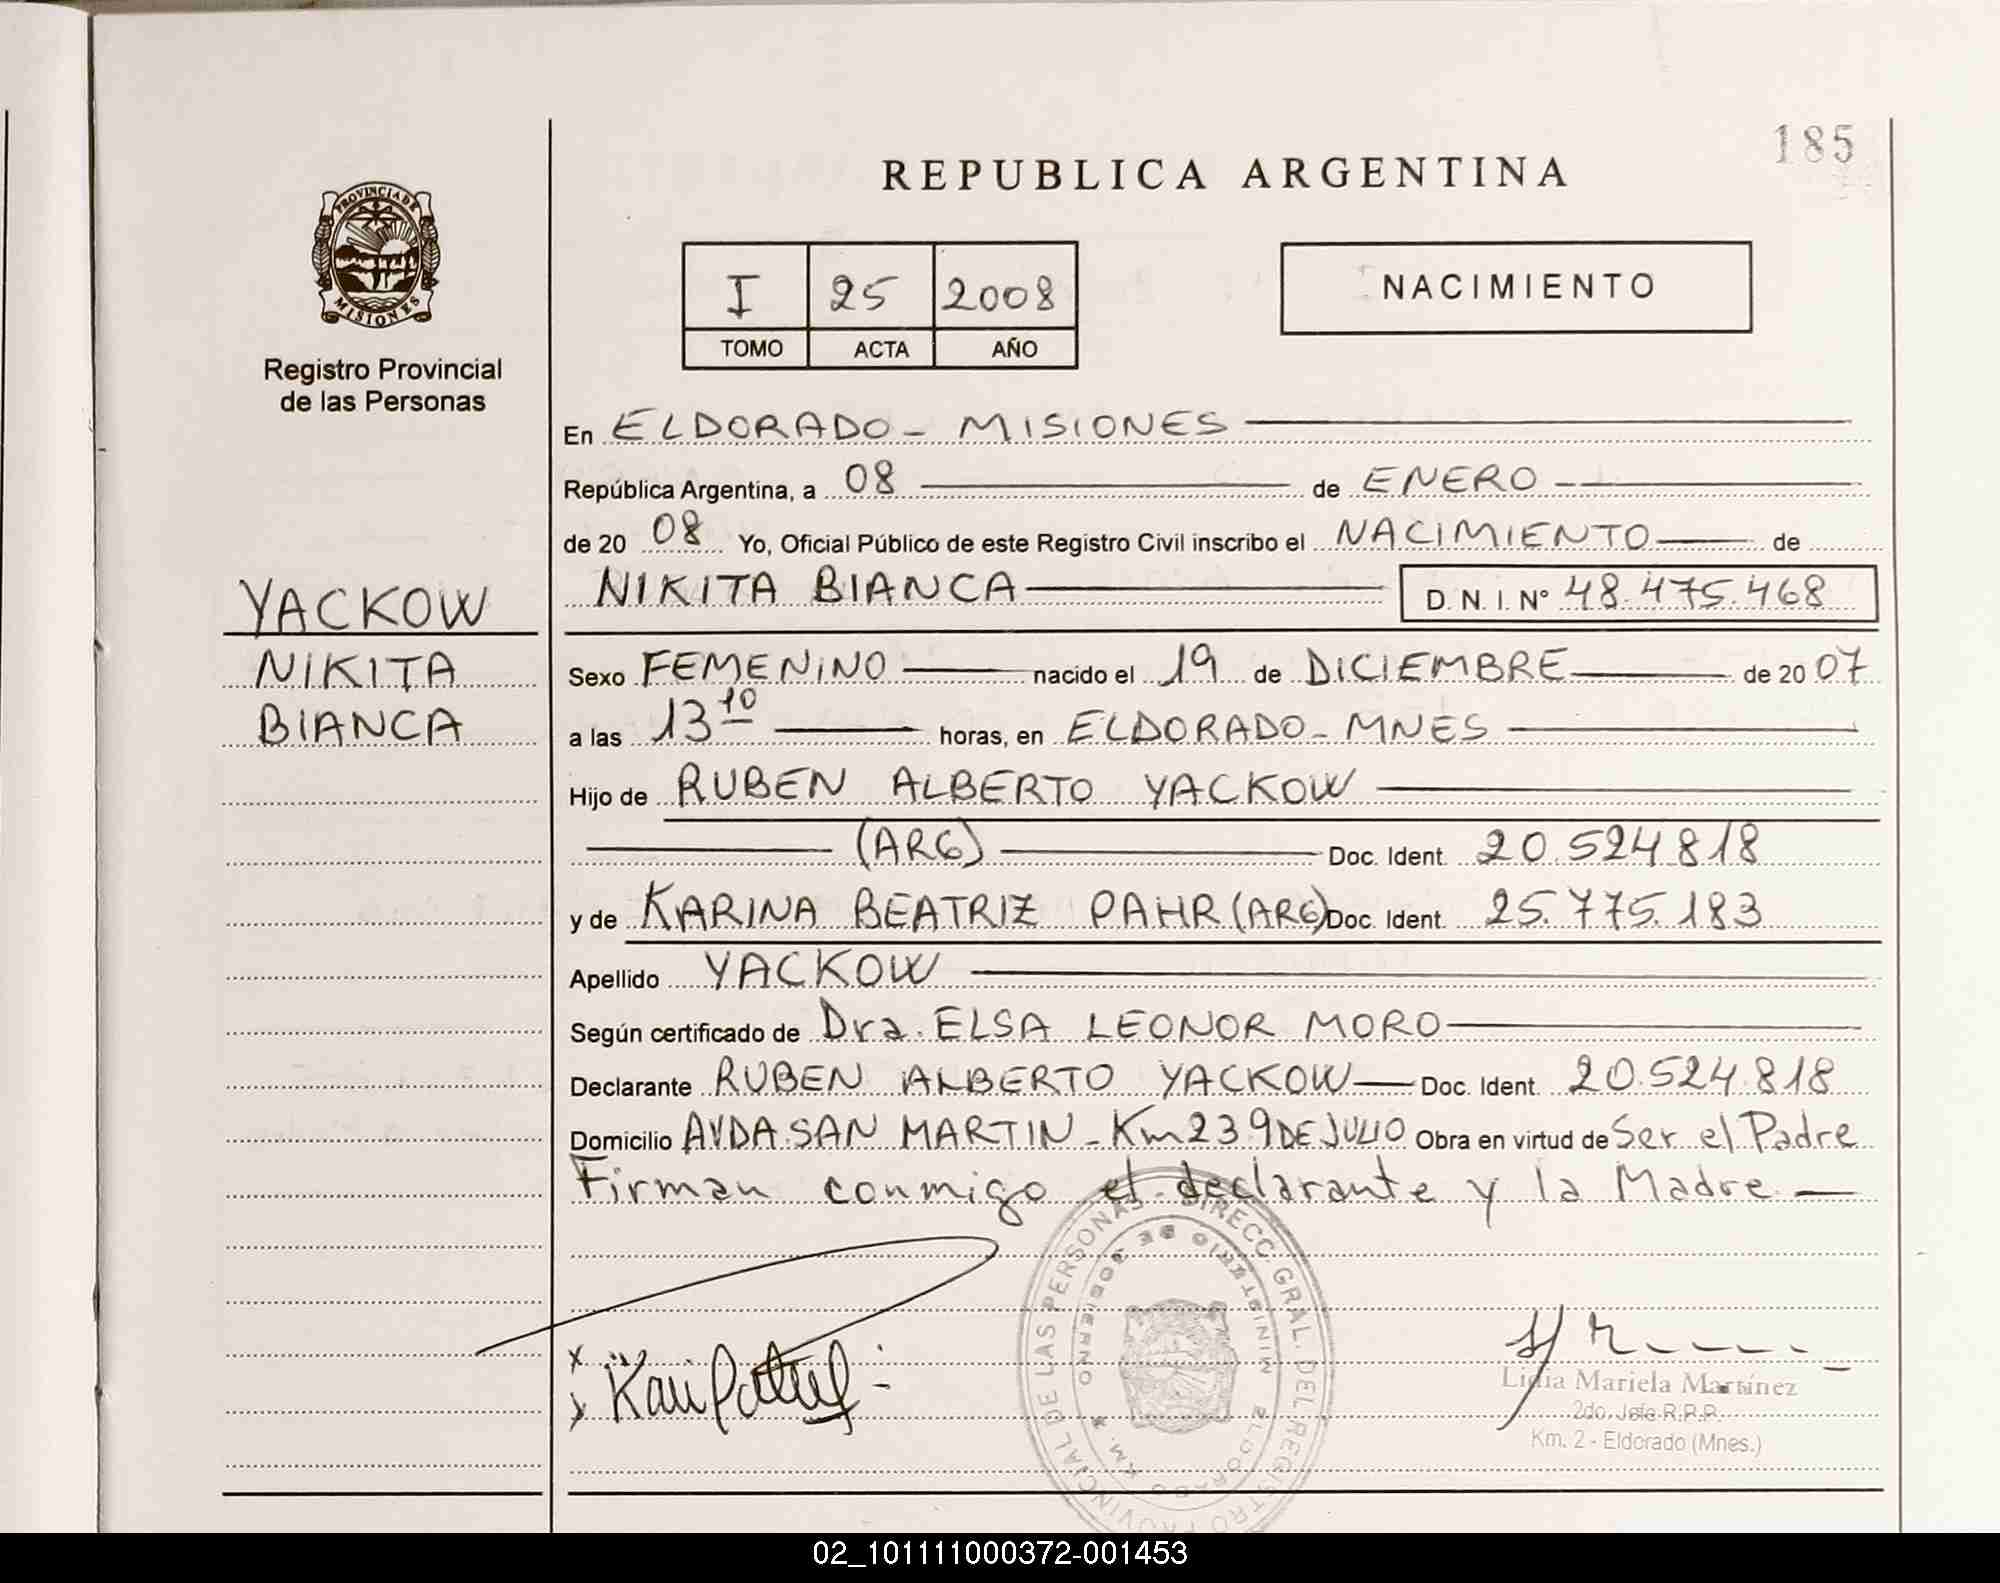 185
REPUBLICA ARGENTINA
PROVINCIA DE
MISIONES
Registro Provincial
de las Personas
I 25 2008
TOMO ACTA AÑO
NACIMIENTO
En ELDORADO - MISIONES
República Argentina, a 08 de ENERO
de 20 08 Yo, Oficial Público de este Registro Civil inscribo el NACIMIENTO de
NIKITA BIANCA D. N. I. Nº 48.475.468
YACKOW
NIKITA
BIANCA
Sexo FEMENINO nacido el 19 de DICIEMBRE de 20 07
a las 13 10 horas, en ELDORADO - MNES
Hijo de RUBEN ALBERTO YACKOW
(ARG) Doc. Ident. 20.524.818
y de KARINA BEATRIZ PAHR (ARG) Doc. Ident. 25.775.183
Apellido YACKOW
Según certificado de Dra. ELSA LEONOR MORO
Declarante RUBEN ALBERTO YACKOW Doc. Ident. 20.524.818
Domicilio AVDA SAN MARTIN - Km 2 3 9 DE JULIO Obra en virtud de Ser el Padre
Firman conmigo el declarante y la Madre
DIRECC. GRAL. DEL REGISTRO PROVINCIAL DE LAS PERSONAS
MINISTERIO DE GOBIERNO
KM. 2 ELDORADO
Lidia Mariela Martínez
2do. Jefe R.P.P.
Km. 2 - Eldorado (Mnes.)
02_101111000372-001453